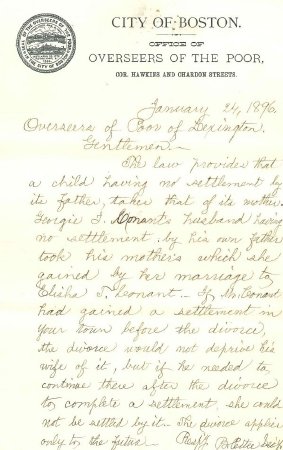 CITY OF BOSTON.
OFFICE OF
OVERSEERS OF THE POOR,
COR. HAWKINS AND CHARDON STREETS.
January 24, 1896.
Overseers of Poor of Lexington,
Gentlemen. —
The law provides that
a child having no settlement by
its father, takes that of its mother.
Georgie F. Conant's husband having
no settlement, by his own father
took his mother's which she
gained by her marriage to
Elisha T. Conant. — If Mr. Conant
had gained a settlement in
your town before the divorce,
the divorce would not deprive his
wife of it, but if he needed to
continue there after the divorce
to complete a settlement, she could
not be settled by it. The divorce applies
only to the